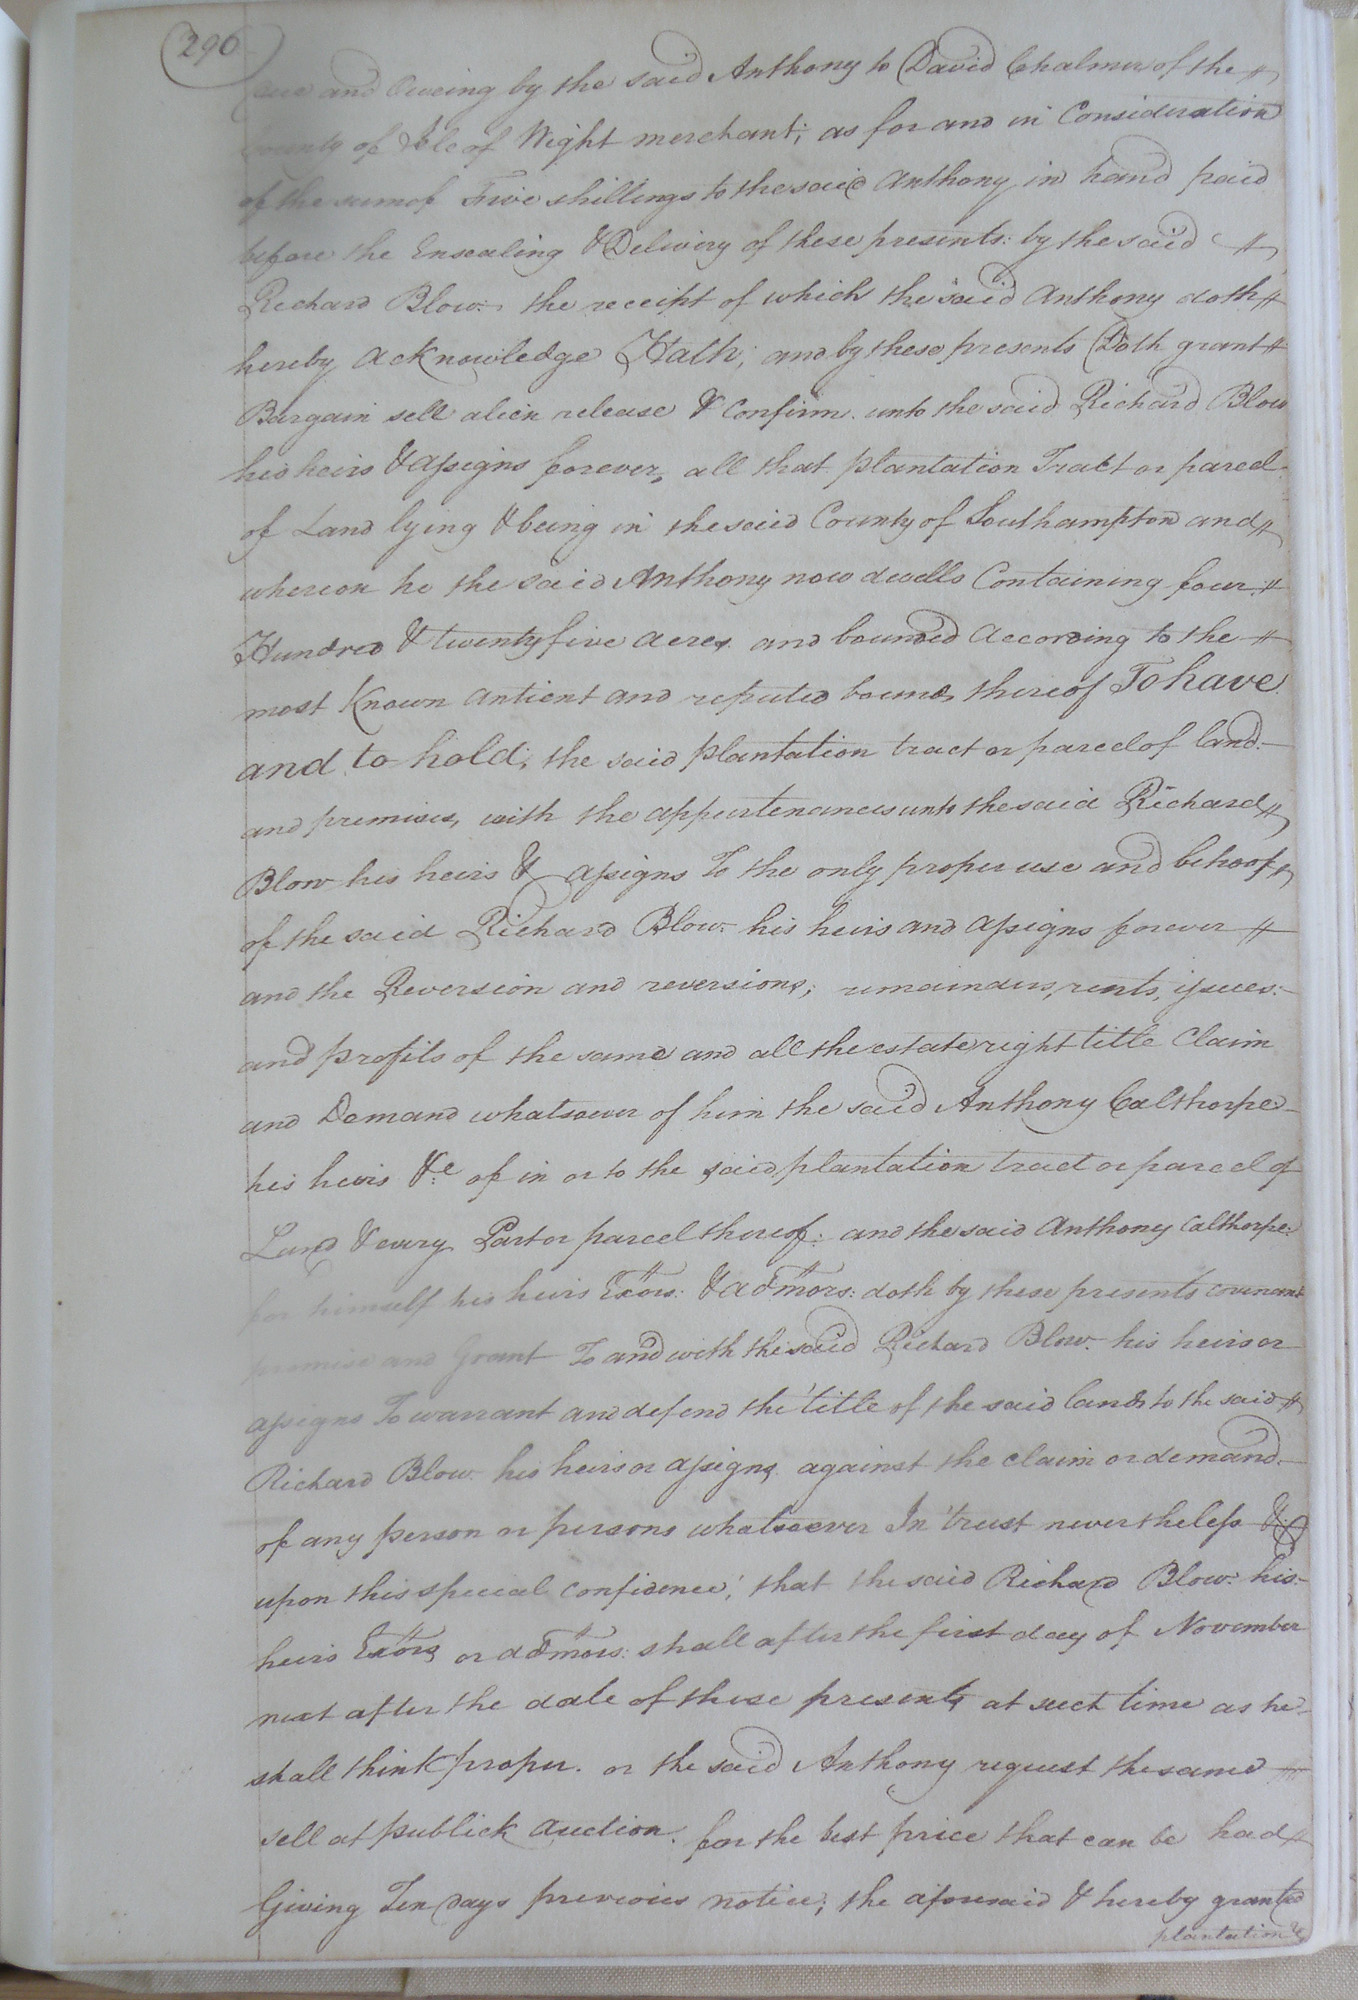 296
due and Oweing by the said Anthony to David Chalmers of the
County of Isle of Wight merchant; as for and in Consideration
of the sum of Five shillings to the said Anthony in hand paid
before the Ensealing & Delivery of these presents: by the said
Richard Blow: the receipt of which the said Anthony doth
hereby acknowledge Hath; and by these presents Doth grant
Bargain sell alien release & confirm unto the said Richard Blow
his heirs & assigns forever, all that plantation Tract or parcel
of Land lying & being in the said County of Southampton and
whereon he the said Anthony now dwells Containing four
Hundred & twenty five acres and bounded According to the
most Known antient and reputed bounds thereof To have
and to hold, the said plantation tract or parcel of land
and premises, with the appurtenances unto the said Richard
Blow his heirs & assigns To the only proper use and behoof
of the said Richard Blow his heirs and assigns forever
and the Reversion and reversions; remainders, rents, issues
and profits of the same and all the estate right title Claim
and Demand whatsoever of him the said Anthony Calthorpe
his heirs &c of in or to the said plantation tract or parcel of
Land & every Part or parcel thereof: and the said Anthony Calthorpe
for himself his heirs Exors: & admors: doth by these presents covenant
promise and Grant To and with the said Richard Blow his heirs or
assigns To warrant and defend the title of the said land to the said
Richard Blow his heirs or assigns against the claim or demand
of any person or persons whatsoever In trust nevertheless &
upon this special confidence, that the said Richard Blow his
heirs Exors or admors: shall after the first day of November
next after the date of these presents at such time as he
shall think proper. or the said Anthony request the same
sell at publick auction, for the best price that can be had
Giving Ten days previous notice; the aforesaid & hereby granted
plantation &